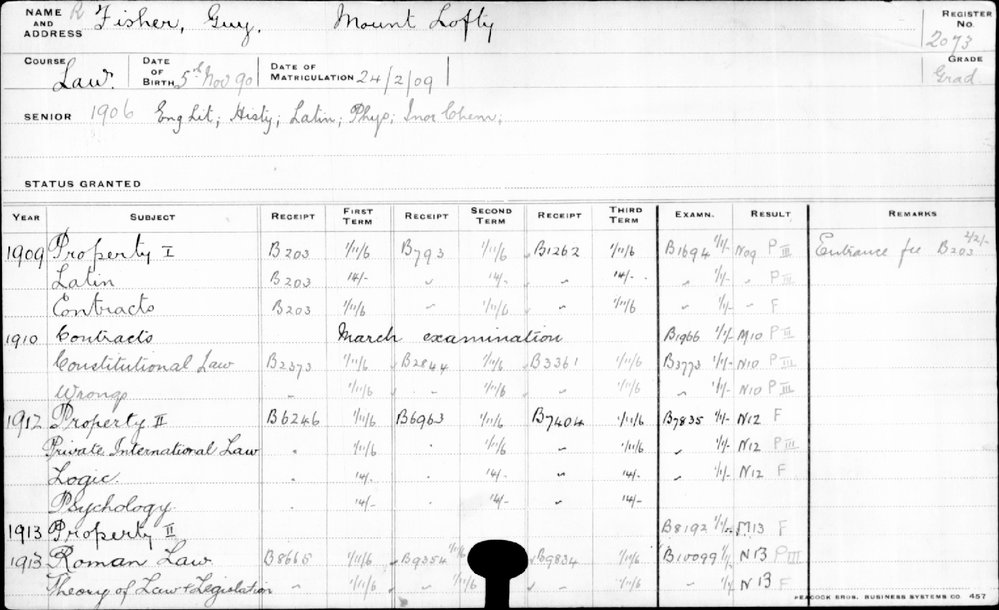 NAME AND ADDRESS R Fisher, Guy. Mount Lofty REGISTER No. 2073
COURSE Law. DATE OF BIRTH 5th Nov 90 DATE OF MATRICULATION 24/2/09 GRADE Grad.
SENIOR 1906 Eng Lit; Histy; Latin; Phys; Inor Chem;
STATUS GRANTED
YEAR SUBJECT RECEIPT FIRST TERM RECEIPT SECOND TERM RECEIPT THIRD TERM EXAMN. RESULT REMARKS
1909 Property I B203 1/11/6 B793 1/11/6 B1262 1/11/6 B1694 1/1/- N09 P III Entrance fee B203 2/2/-
Latin B203 14/- " 14/- " 14/- " 1/1/- " P III
Contracts B203 1/11/6 " 1/11/6 " 1/11/6 " 1/1/- " F
1910 Contracts March examination B1966 1/1/- M10 P III
Constitutional Law B2373 1/11/6 B2844 1/11/6 B3361 1/11/6 B3773 1/1/- N10 P III
Wrongs " 1/11/6 " 1/11/6 " 1/11/6 " 1/1/- N10 P III
1912 Property II B6246 1/11/6 B6963 1/11/6 B7404 1/11/6 B7835 1/1/- N12 F
Private International Law " 1/11/6 " 1/11/6 " 1/11/6 " 1/1/- N12 P III
Logic. " 14/- " 14/- " 14/- " 1/1/- N12 F
Psychology " 14/- " 14/- " 14/-
1913 Property II B8192 1/1/- M13 F
1913 Roman Law B8668 1/11/6 B9354 1/11/6 B9834 1/11/6 B10099 1/1/- N13 P III
Theory of Law & Legislation " 1/11/6 " 1/11/6 " 1/11/6 " 1/1/- N13 F
PEACOCK BROS. BUSINESS SYSTEMS CO. 457